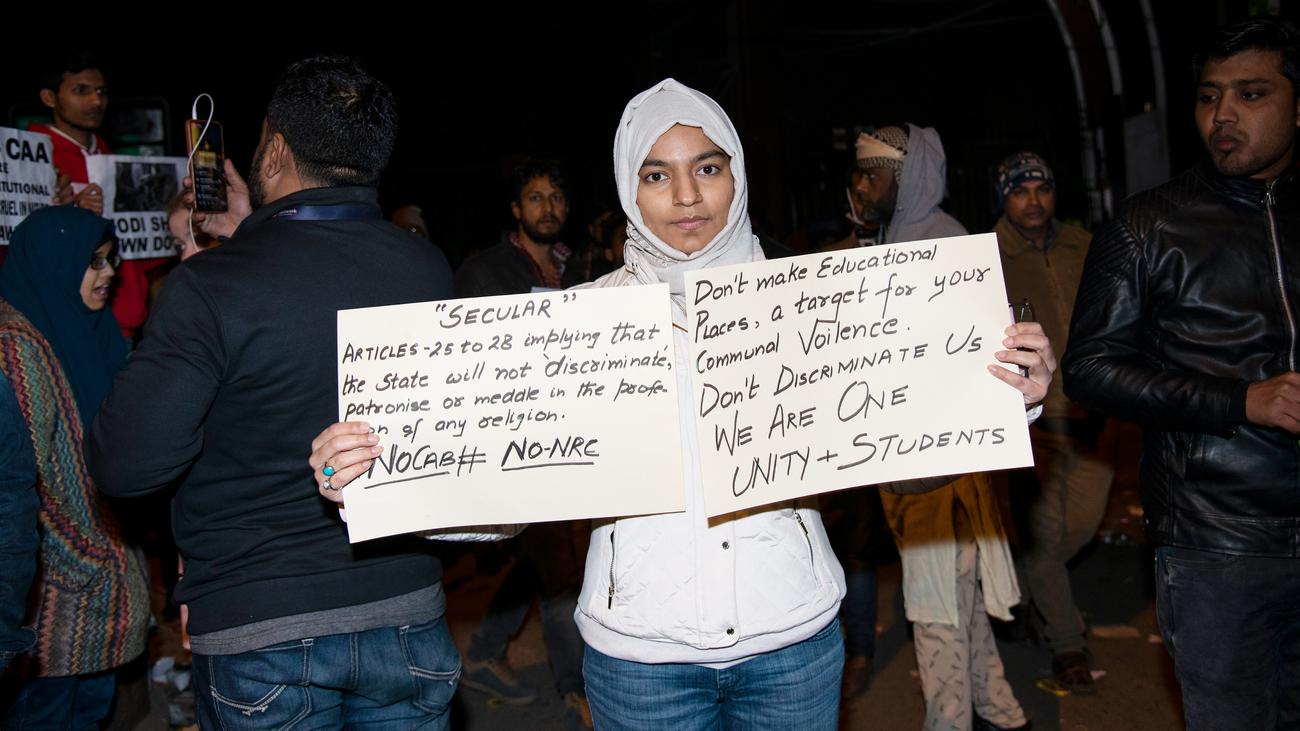 CAA
"SECULAR"
ARTICLES-25 to 28 implying that
the State will not 'discriminate',
patronise or meddle in the profe-
of any religion.
NOCAB# NO-NRC
Don't make Educational
Places, a target for your
Communal Voilence.
Don't DISCRIMINATE Us
WE ARE ONE
UNITY + STUDENTS
ODI SH
WN DO